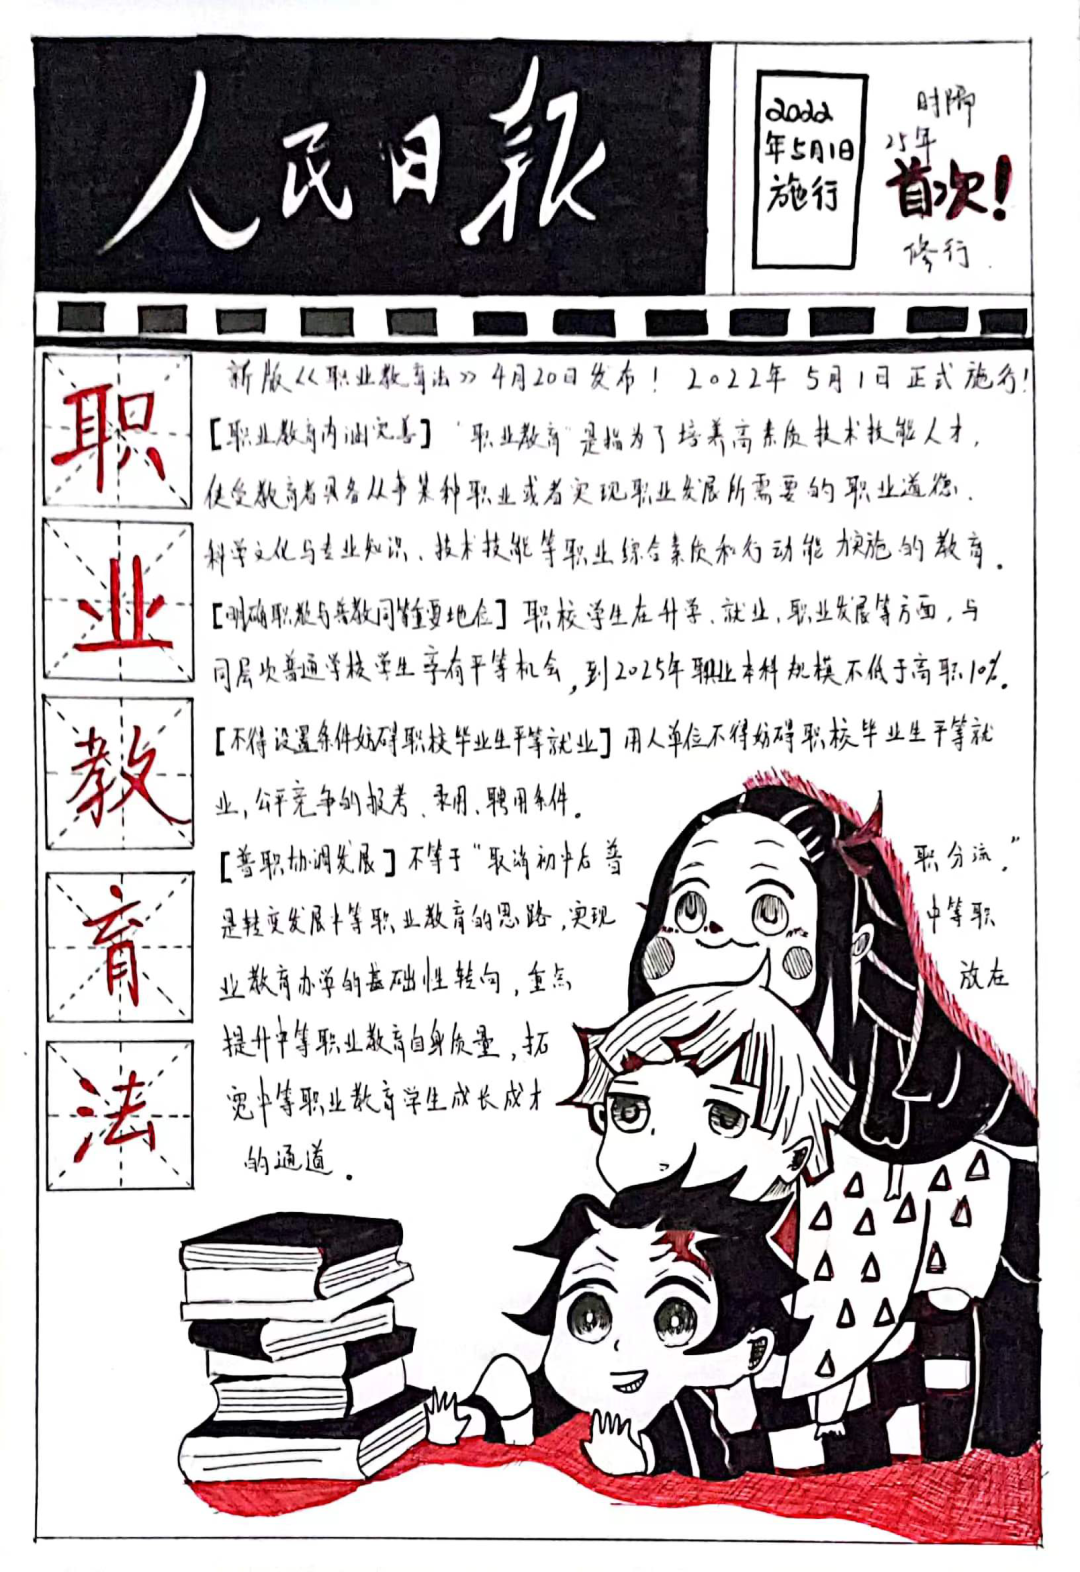 人民日报
2022
年5月1日
施行
时隔
25年
首次!
修行
职
业
教
育
法
新版《职业教育法》4月20日发布! 2022年5月1日正式施行!
[职业教育内涵完善] "职业教育"是指为了培养高素质技术技能人才,
使受教育者具备从事某种职业或者实现职业发展所需要的职业道德、
科学文化与专业知识、技术技能等职业综合素质和行动能力实施的教育。
[明确职教与普教同等重要地位] 职校学生在升学、就业、职业发展等方面,与
同层次普通学校学生享有平等机会,到2025年职业本科规模不低于高职10%。
[不得设置条件妨碍职校毕业生平等就业] 用人单位不得妨碍职校毕业生平等就
业,公平竞争的报考、录用、聘用条件。
[普职协调发展] 不等于"取消初中后普 职分流,"
是转变发展中等职业教育的思路,实现 中等职
业教育办学的基础性转向,重点 放在
提升中等职业教育自身质量,拓
宽中等职业教育学生成长成才
的通道。